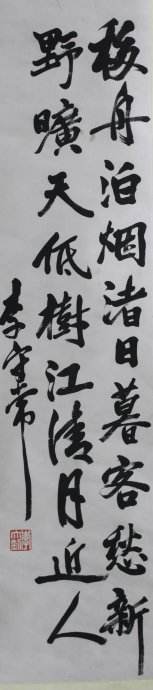 移舟泊烟渚日暮客愁新
野曠天低樹江清月近人
李守常